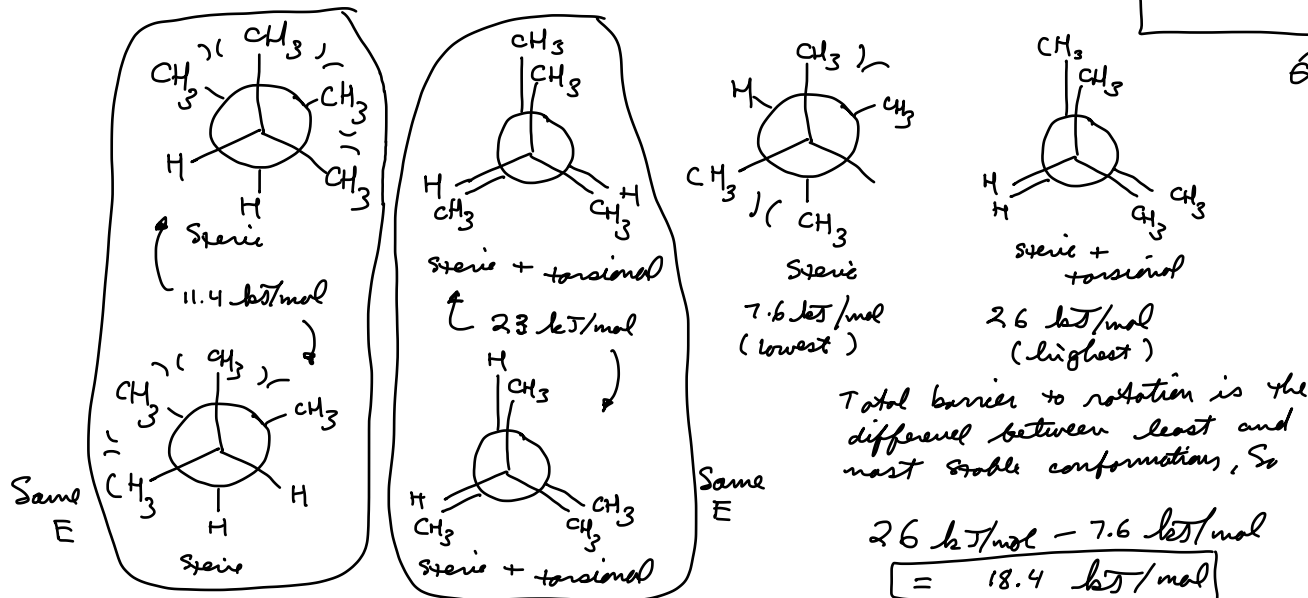 CH3
CH3
CH3
H
CH3
H
Steric
11.4 kJ/mol
CH3
CH3
CH3
CH3
H
H
Steric
Same
E
CH3
CH3
H
H
CH3
CH3
steric + torsional
23 kJ/mol
H
CH3
H
CH3
CH3
CH3
steric + torsional
Same
E
CH3
H
CH3
CH3
CH3
Steric
7.6 kJ/mol
(lowest)
CH3
CH3
H
H
CH3
CH3
steric +
torsional
26 kJ/mol
(highest)
Total barrier to rotation is the
difference between least and
most stable conformations, So
26 kJ/mol - 7.6 kJ/mol
= 18.4 kJ/mol